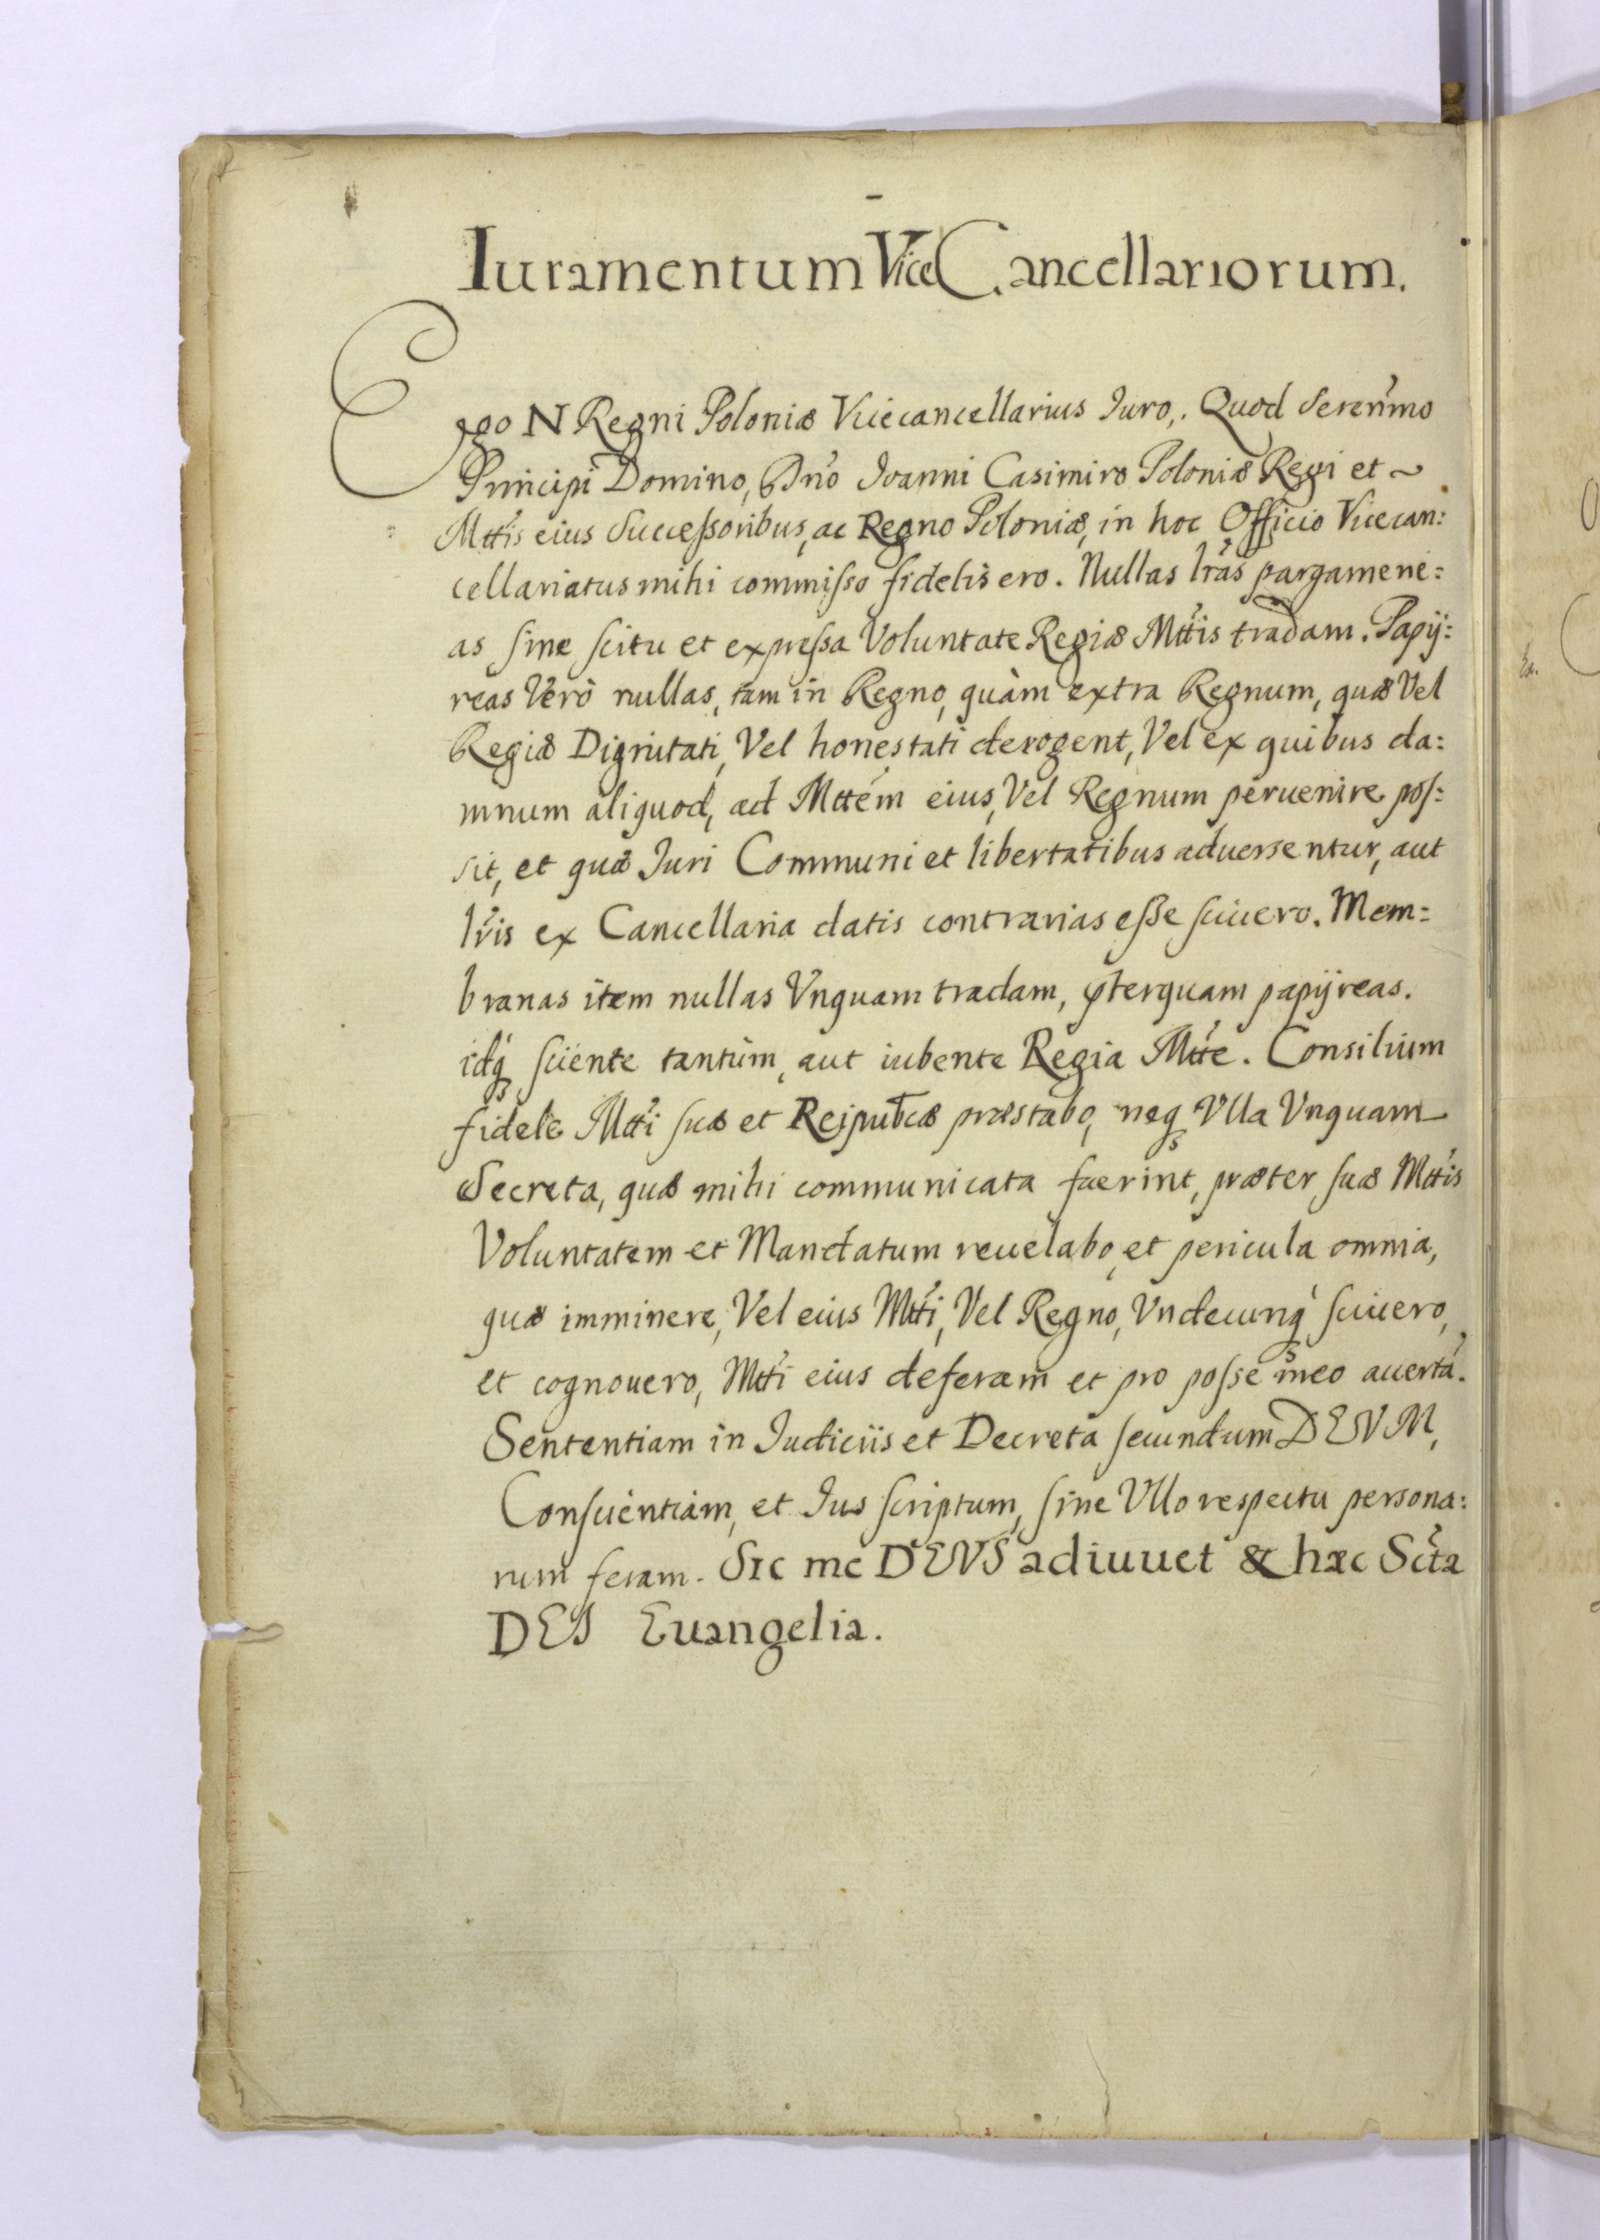 Iuramentum Vice Cancellariorum.
Ego N Regni Poloniæ Vicecancellarius Iuro,. Quod Sereñmo
Principi Domino, Dño Ioanni Casimiro Poloniæ Regi et ~
Mttis eius Successoribus, ac Regno Poloniæ, in hoc Officio Vicecan:
cellariatus mihi commisso fidelis ero. Nullas lrãs pargamene:
as sine scitu et expressa Voluntate Regiæ Mttis tradam. Papÿ:
reas Verò nullas, tam in Regno, quàm extra Regnum, quæ Vel
Regiæ Dignitati, Vel honestati derogent, Vel ex quibus da:
mnum aliquod, ad Mttem eius, Vel Regnum peruenire pos:
sit, et quæ Iuri Communi et libertatibus aduersentur, aut
lris ex Cancellaria datis contrarias esse sciuero. Mem=
branas item nullas Vnquam tradam, pterquam papÿreas.
idq́ sciente tantùm, aut iubente Regia Mtte. Consilium
fidele Mtti suæ et Reipubcæ præstabo, neq Vlla Vnquam
Secreta, quæ mihi communicata fuerint, præter suæ Mttis
Voluntatem et Mandatum reuelabo, et pericula omnia,
quæ imminere, Vel eius Mtti, Vel Regno, Vndecunq́ sciuero,
et cognouero, Mtti eius deferam et pro posse meo auertã.
Sententiam in Iudiciis et Decreta secundum DEVM,
Conscientiam, et Ius scriptum, sine Vllo respectu persona:
rum feram. Sic me DEVS adiuuet & hæc Scta
DEI Euangelia.